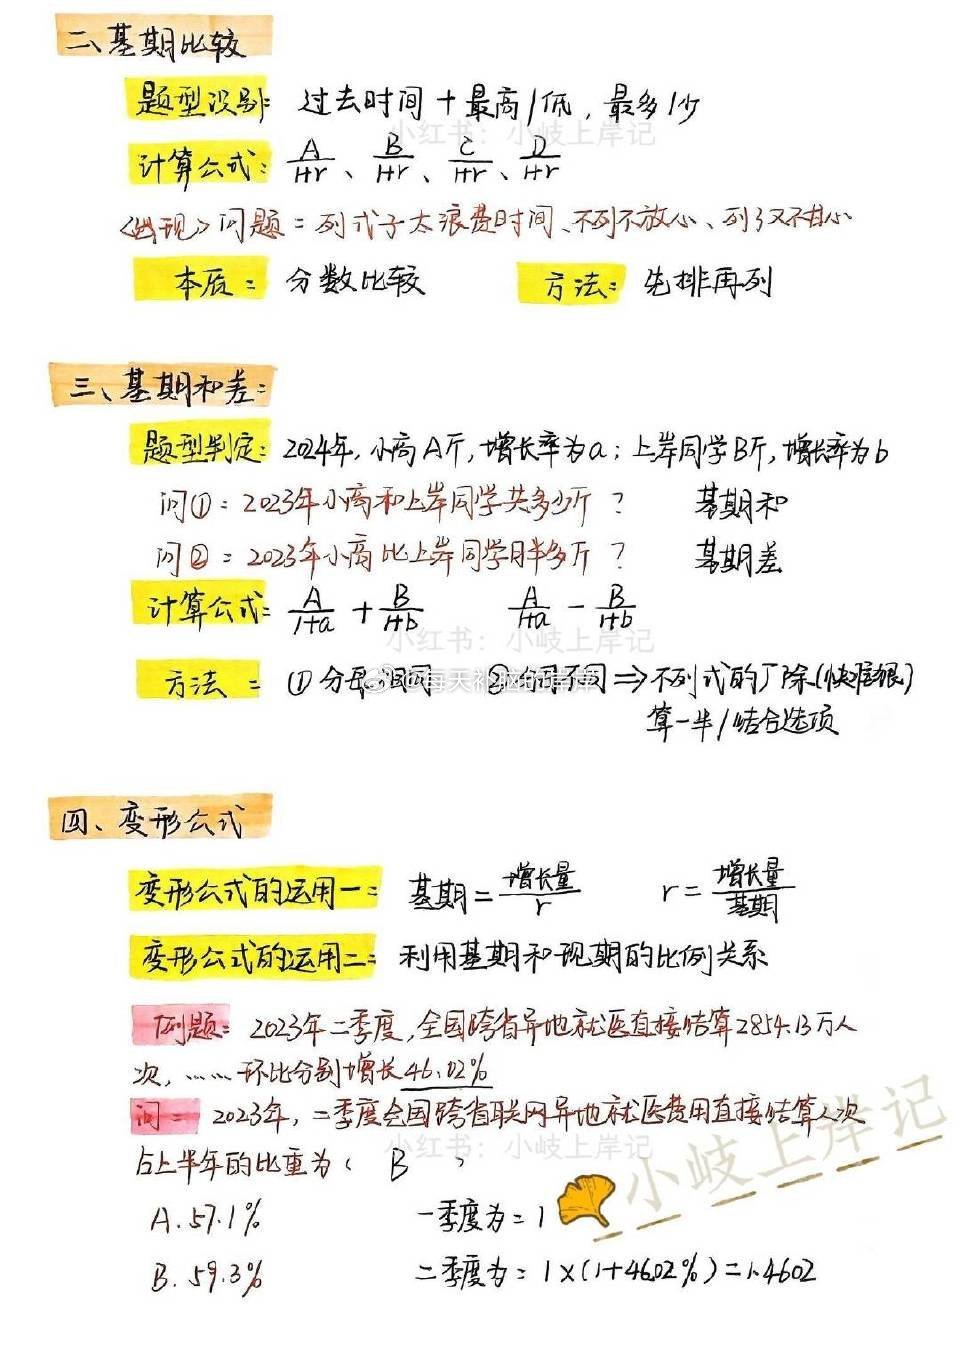 二、基期比较
题型识别: 过去时间 + 最高/低, 最多/少
小红书：小岐上岸记
计算公式: A/1+r、B/1+r、C/1+r、D/1+r
<出现>问题 = 列式子太浪费时间、不列不放心、列了又不甘心
本质 = 分数比较 方法: 先排再列
三、基期和差:
题型判定: 2024年, 小高A斤, 增长率为a; 上岸同学B斤, 增长率为b
问① = 2023年小高和上岸同学共多少斤? 基期和
问② = 2023年小高比上岸同学胖多斤? 基期差
计算公式: A/1+a + B/1+b A/1+a - B/1+b
小红书：小岐上岸记
方法 = ①分母相同 ②不同 ⇒ 不列式的
算一半/结合选项
四、变形公式
变形公式的运用一: 基期=增长量/r r=增长量/基期
变形公式的运用二: 利用基期和现期的比例关系
例题: 2023年二季度, 全国跨省异地就医直接结算2854.13万人
次, …… 环比分别增长46.02%
问 = 2023年, 二季度全国跨省联网异地就医费用直接结算人次
小红书：小岐上岸记
占上半年的比重为( B )
小岐上岸记
A. 57.1% 一季度为: 1
B. 59.3% 二季度为: 1×(1+46.02%)=1.4602